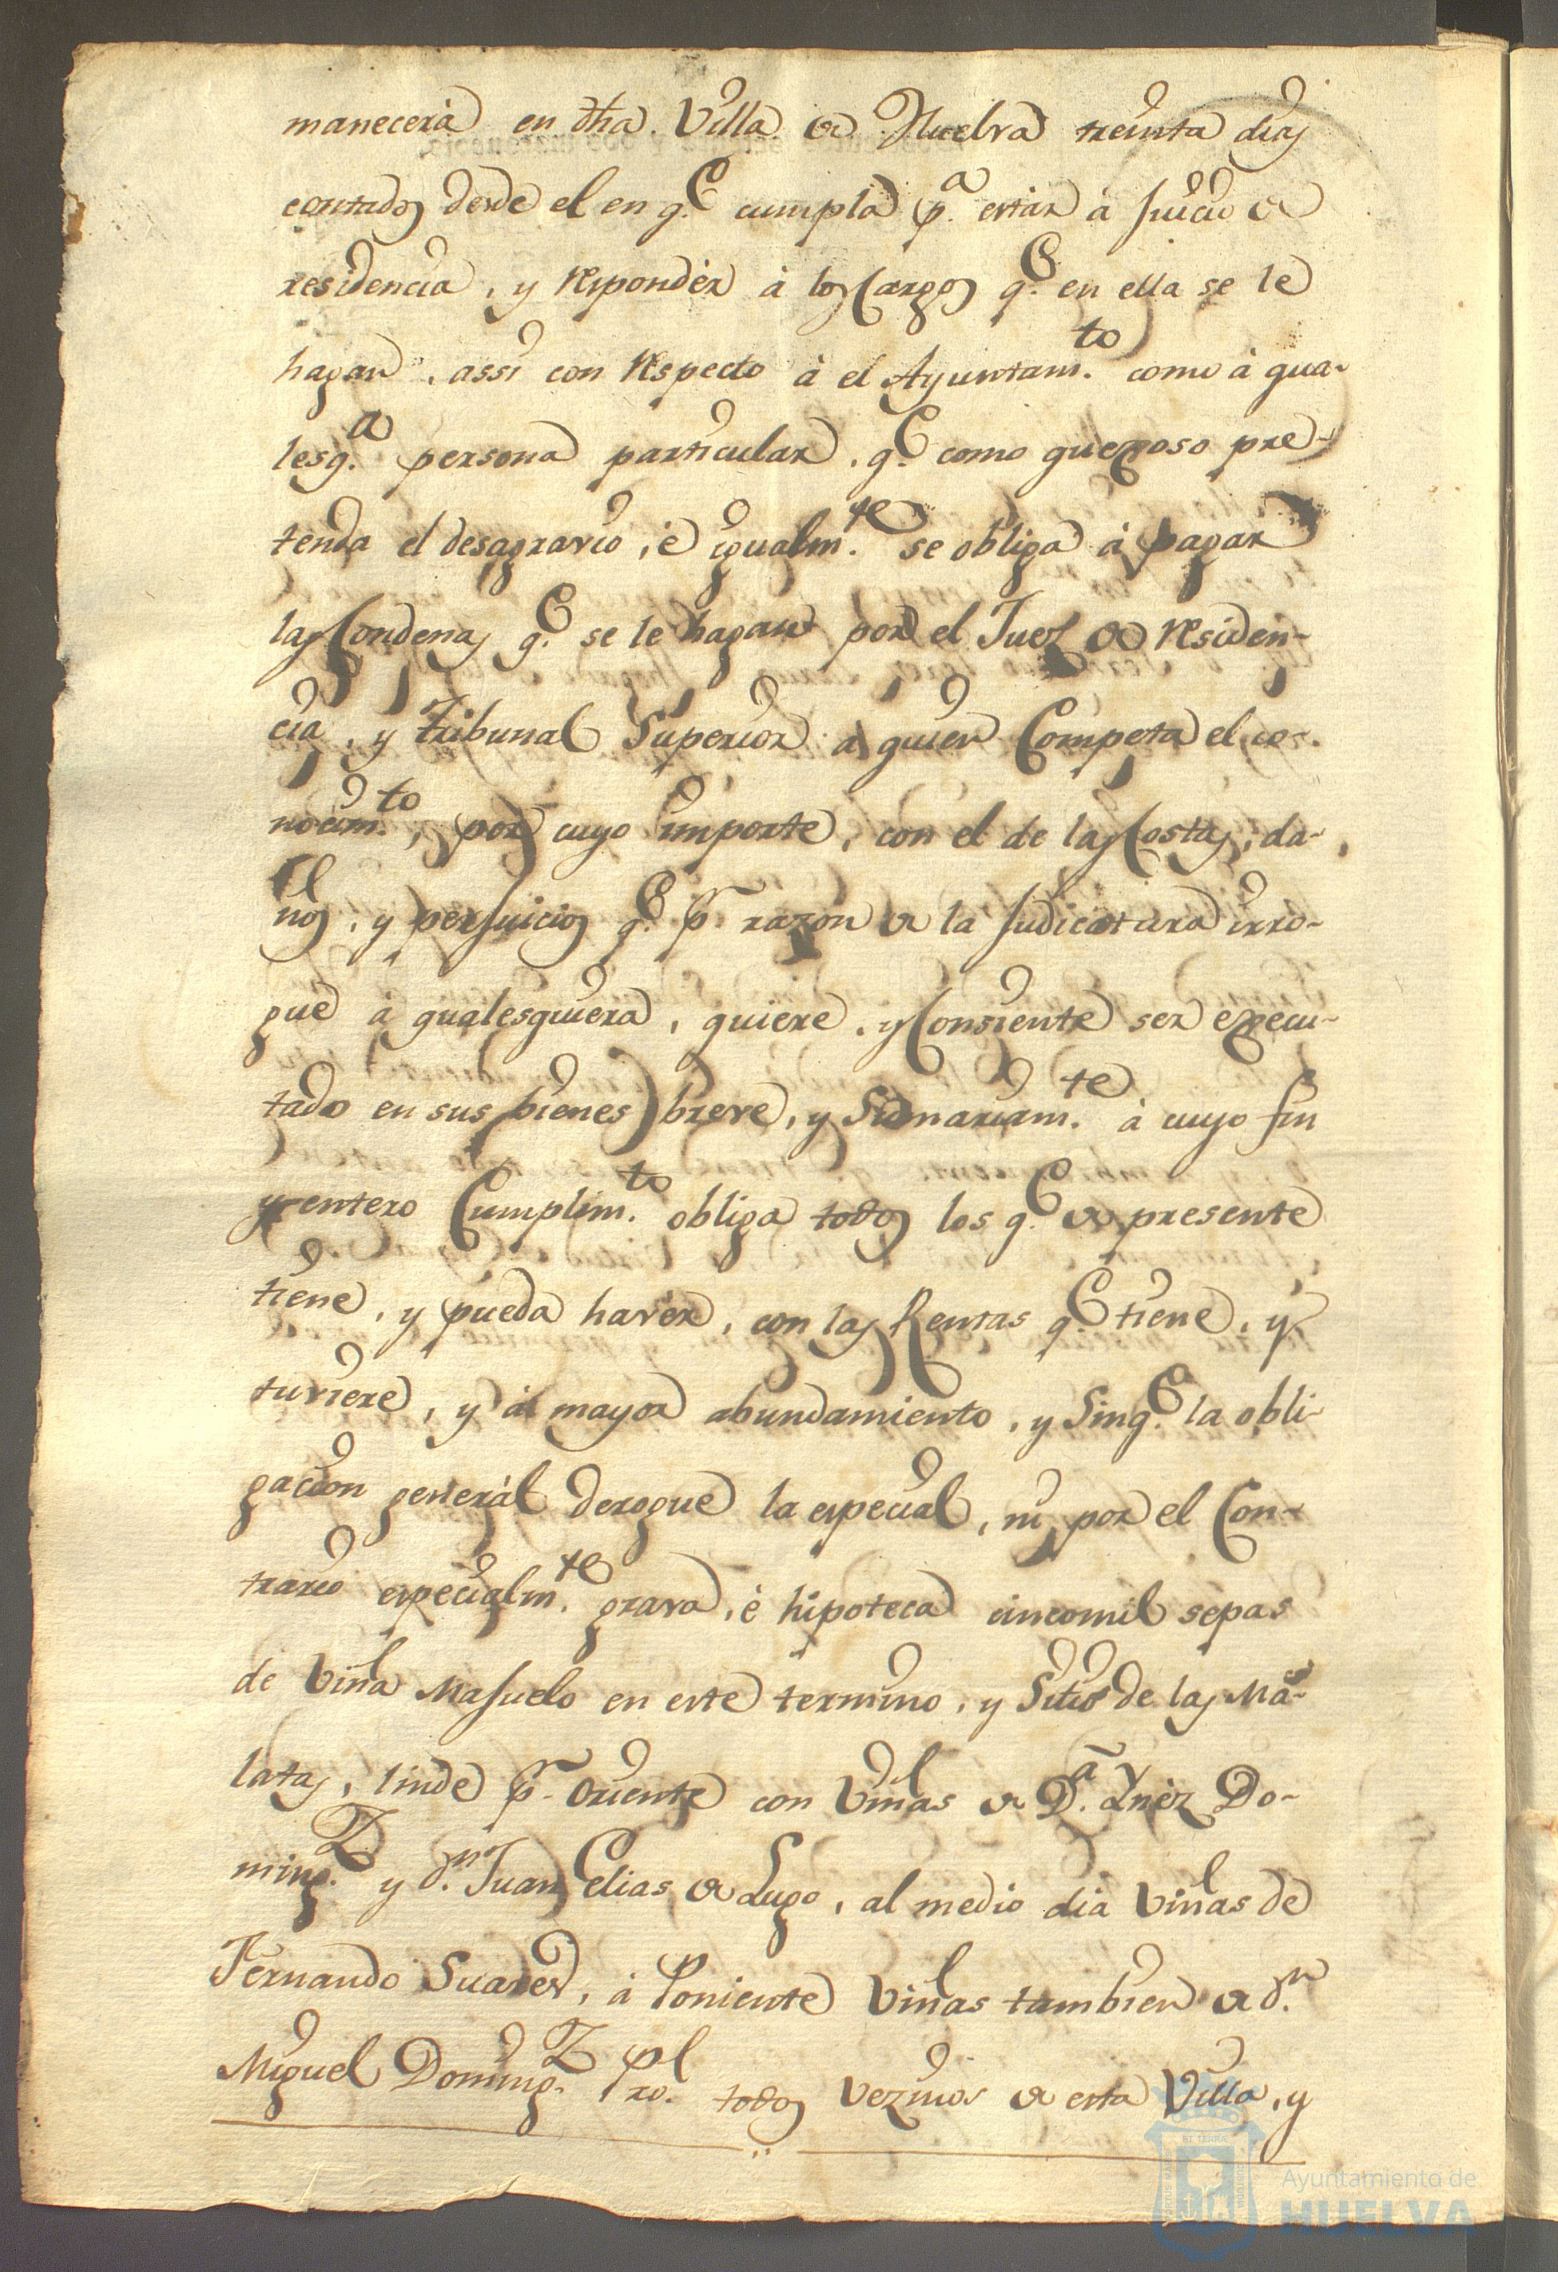 manecerà en dha. Villa de Huelva treinta dias
contados desde el en q.e cumpla p.a estàr à juicio de
residencia, y respondèr à los Cargos q.e en ella se le
hagan, assi con respecto à el Ayuntam.to como à qua-
lesq.a persona particular, q.e como quexoso pre-
tenda el desagravio, è igualm.te se obliga à pagar
las Condenas q.e se le hagan por el Juez de residen-
cia, y tribunal Superior à quien Competa el co-
nocim.to, por cuyo importe, con el de las Costas, da-
ños, y perjuicios q.e p.r razon de la judicatura irro-
gue à qualesquiera, quiere, y Consiente ser execu-
tado en sus bienes breve, y Sumariam.te à cuyo fin
y entero Cumplim.to obliga todos los q.e de presente
tiene, y pueda havèr, con las Rentas q.e tiene, y
tuviere, y àl mayor abundamiento, y Sinq.e la obli-
gacion generàl derogue la especial, ni por el Con-
trario especialm.te grava, è hipoteca cincomil sepas
de Viña Masuelo en este termino, y Sitio de las Ma-
latas, linde p.r Oriente con Viñas de D.a Ynèz Do-
ming.z y d.n Juan Elias de Lugo, al medio dia Viñas de
Fernando Suarez, à Poniente Viñas tambien de d.n
Miguel Doming.z Pro. todos Vezinos de esta Villa, y
Ayuntamiento de
HUELVA